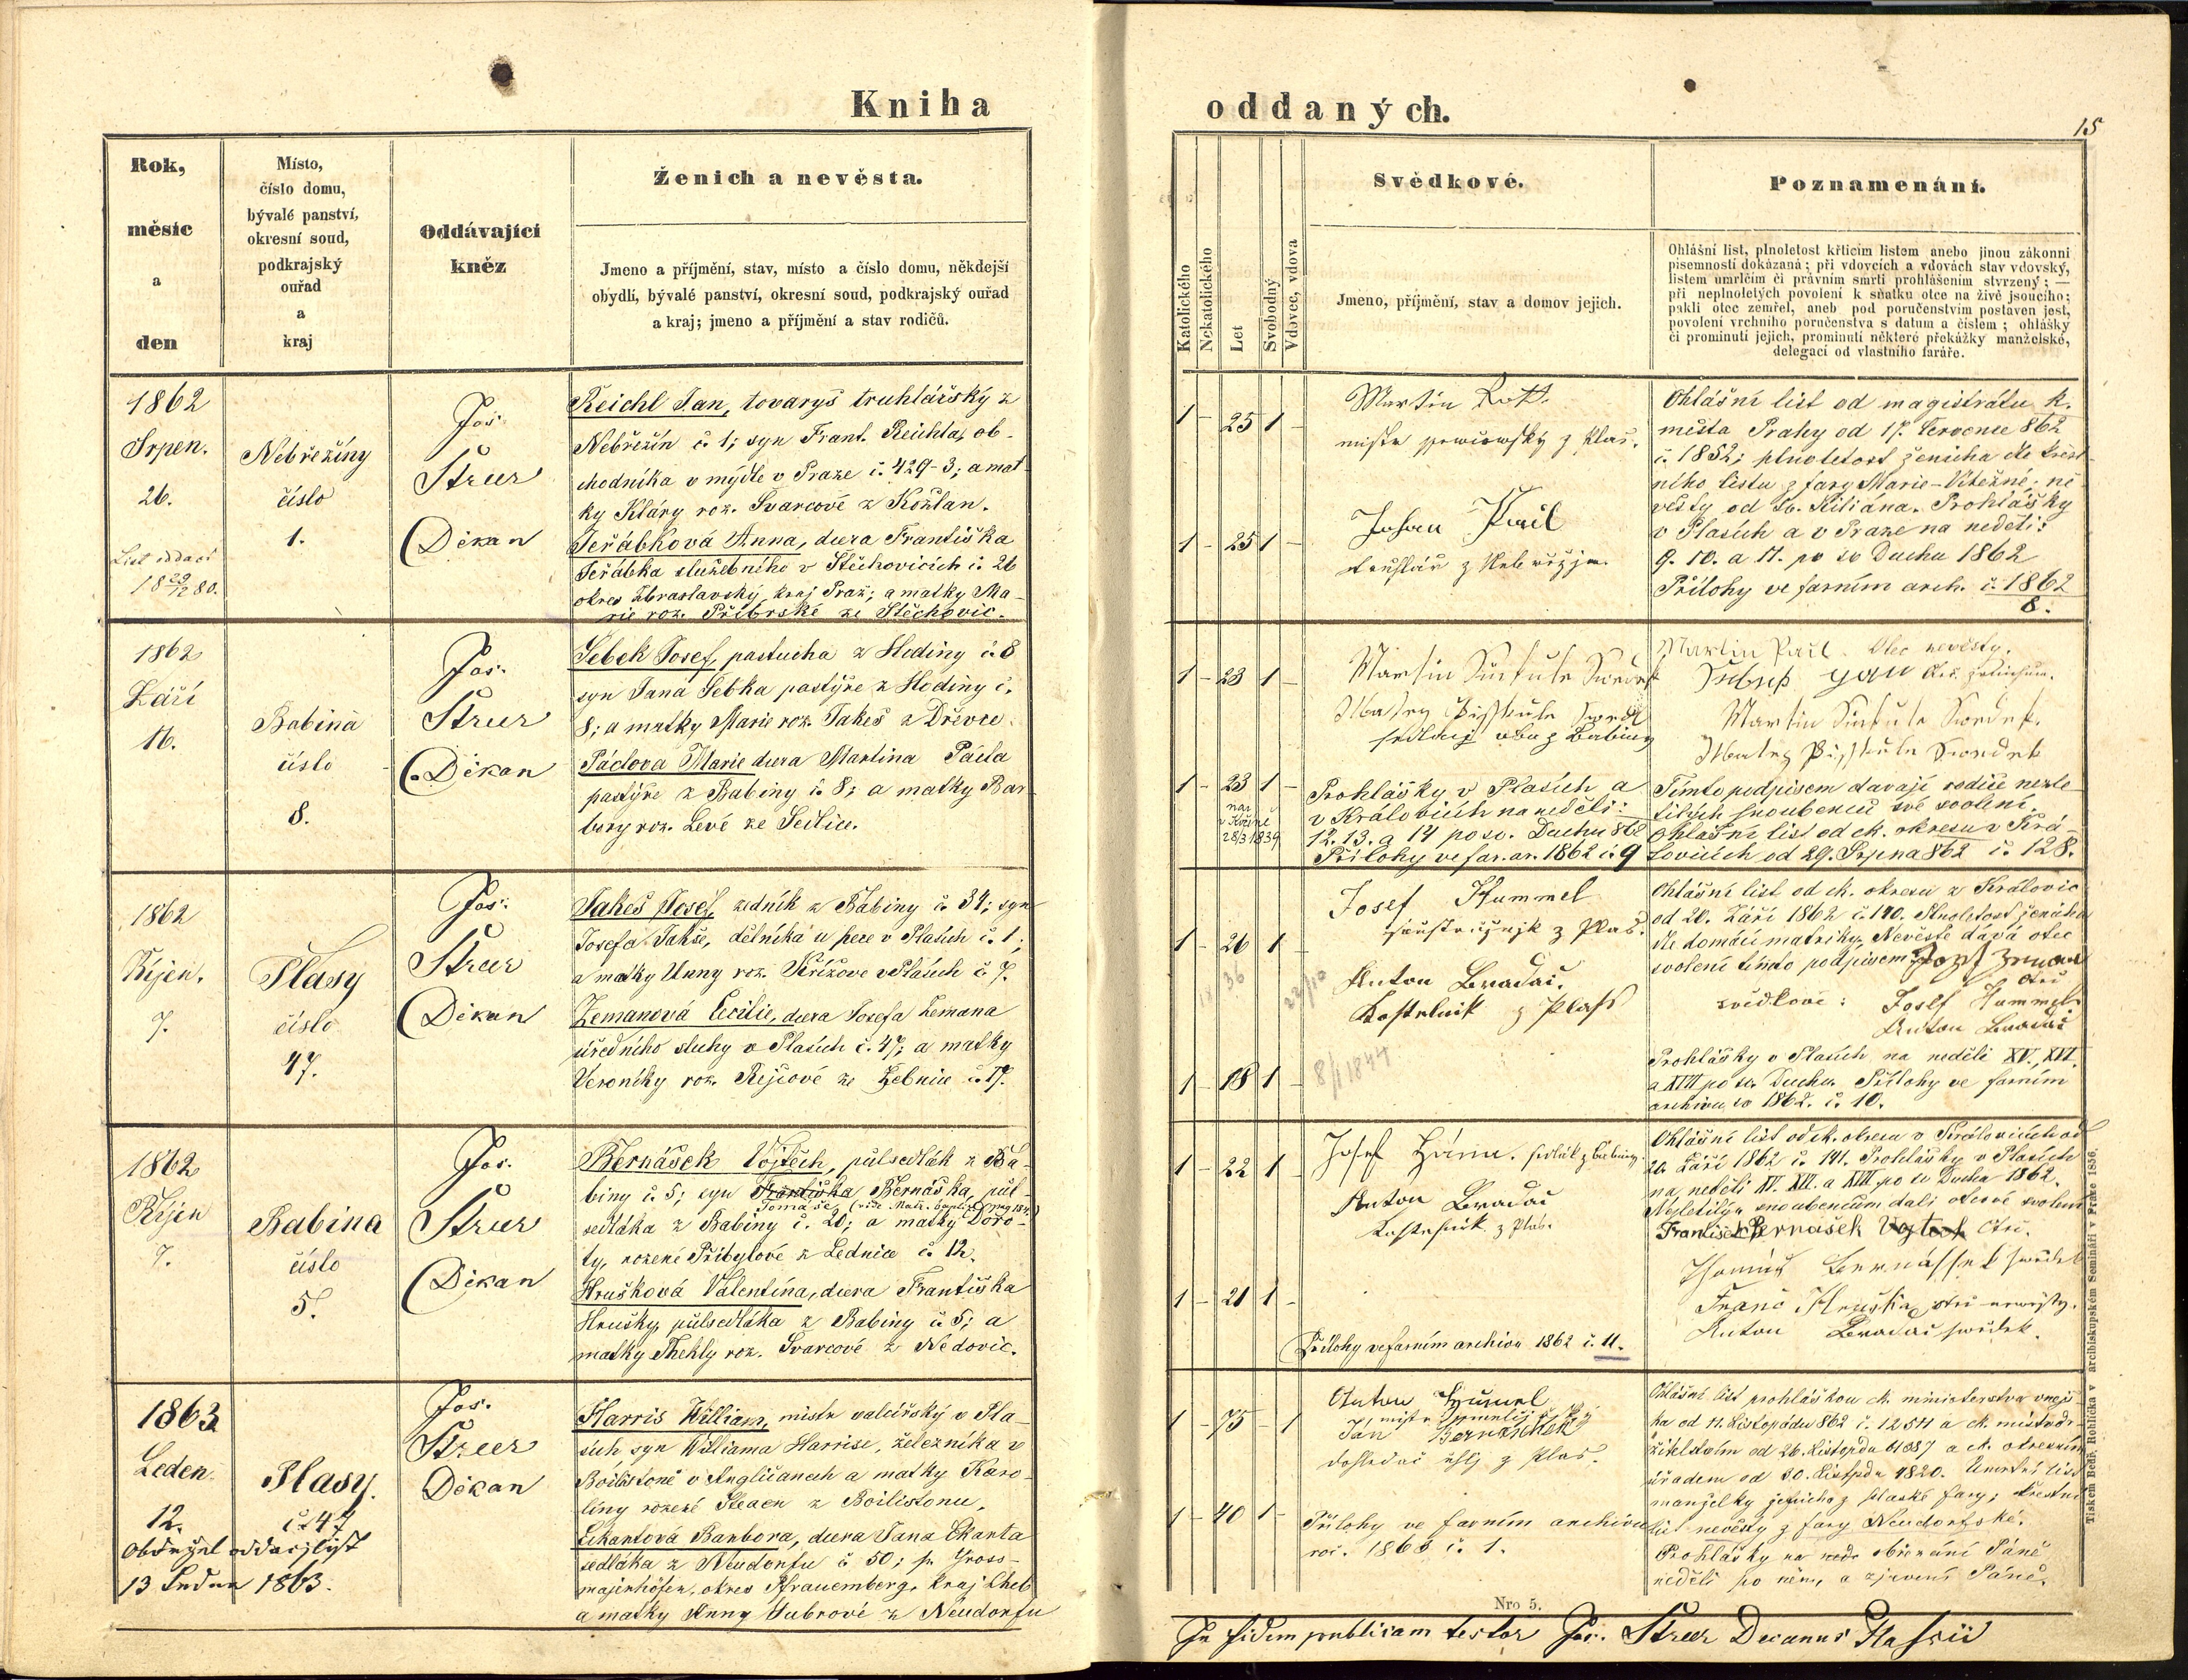 Kniha
oddaných.
15
Rok,
měsíc
a
den
Místo,
číslo domu,
bývalé panství,
okresní soud,
podkrajský
ouřad
a
kraj
Oddávající
kněz
Ženich a nevěsta.
Jmeno a příjmění, stav, místo a číslo domu, někdejší
obydlí, bývalé panství, okresní soud, podkrajský ouřad
a kraj; jmeno a příjmění a stav rodičů.
Katolického
Nekatolického
Let
Svobodný
Vdovec, vdova
Svědkové.
Jmeno, příjmění, stav a domov jejich.
Poznamenání.
Ohlášní list, plnoletost křticím listem anebo jinou zákonní
písemností dokázaná; při vdovcích a vdovách stav vdovský,
listem úmrlčím či právním smrti prohlášením stvrzený; —
při neplnoletých povolení k sňatku otce na živě jsoucího;
pakli otec zemřel, aneb pod poručenstvím postaven jest,
povolení vrchního poručenstva s datum a číslem; ohlášky
či prominutí jejich, prominutí některé překážky manželské,
delegací od vlastního faráře.
1862
Srpen.
26.
List oddací
18 29/12 80.
Nebřeziny
číslo
1.
Jos.
Štrer
Děkan
Reichl Jan, tovaryš truhlářský z
Nebřezín č. 1; syn Frant. Reichla, ob-
chodníka v mýdle v Praze č. 429-3; a mat-
ky Kláry roz. Švarcové z Kožlan.
Jeřábková Anna, dcera Františka
Jeřábka služebního v Štěchovicích č. 26
okres Zbraslavský, kraj Praž.; a matky Ma-
rie roz. Příbrské ze Štěchovic.
1 - 25 1 -
1 - 25 1 -
Martin Rott.
Johan Pail
truhlář z Nebřezin
Ohlášní list od magistrátu k.
města Prahy od 17. Července 862
č. 1852; plnoletost ženicha dle křest-
ního listu z fary Marie-Vítězné; ne-
věsty od Sv. Kiliána. Prohlášky
v Plasích a v Praze na neděli:
9. 10. a 11. po sv Duchu 1862
Přílohy ve farním arch. č. 1862
8.
1862
Září
16.
Babina
číslo
8.
Jos.
Štrer
Děkan
Šebek Josef, pastucha z Hodiny č. 8
syn Jana Šebka pastýře z Hodiny č.
8; a matky Marie roz. Jakeš z Dřevce.
Páclova Marie dcera Martina Pácla
pastýře z Babiny č. 8; a matky Bar-
bory roz. Levé ze Sedlice.
1 - 23 1 -
1 - 23 1 -
28/3 1839
Prohlášky v Plasích a
v Kralovicích na neděli:
12. 13. a 14 po sv. Duchu 862
Přílohy ve far. ar. 1862 č. 9
Martin Pail. Otec nevěsty.
Tímto podpisem davají rodiče nezle-
tilých snoubenců své svolení.
Ohlašní list od ck. okresu v Kra-
lovicích od 29. Srpna 862 č. 128.
1862
Říjen.
7.
Plasy
číslo
47.
Jos.
Štrer
Děkan
Jakeš Josef, zedník z Babiny č. 34; syn
Josefa Jakše, dělníka u pece v Plasích č. 1;
a matky Anny roz. Křížove v Plasích č. 7.
Zemanová Cecilie, dcera Josefa Zemana
úředního sluhy v Plasích č. 47; a matky
Veroniky roz. Rejcové ze Žebnice č. 17.
1 - 26 1 -
1 - 18 1 -
8/1 1844
Josef Hummel
Anton Bradáč.
Kostelnik z Plass
Ohlášní list od ck. okresu z Kralovic
od 20. Září 1862 č. 140. Plnoletost ženicha
dle domácí matriky. Nevěstě dává otec
svolení tímto podpisem
svědkové: Josef Hummel
Anton Bradáč
Prohlášky v Plasích na neděli XV, XVI.
a XVII po sv. Duchu. Přílohy ve farním
archivu co 1862. č. 10.
1862
Říjen
7.
Babina
číslo
5.
Jos.
Štrer
Děkan
Bernášek Vojtěch, půlsedlák z Ba-
biny č. 5; syn Františka Bernáška, půl-
Tomáše
sedláka z Babiny č. 20; a matky Doro-
ty, rozené Přibylové z Lednice č. 12.
Hrušková Valentina, dcera Františka
Hrušky, půlsedláka z Babiny č. 5; a
matky Thekly roz. Švarcové z Nedovic.
1 - 22 1 -
1 - 21 1 -
Anton Bradáč
Přílohy ve farním archivu 1862 č. 11.
Ohlášní list od ck. okresu v Kralovicích od
20. Září 1862 č. 141. Prohlášky v Plasích
na neděli XV. XVI. a XVII po sv Duchu 1862.
František Bernašek Vojtěch Otec.
Franc Hruška otec nevěsty.
Anton Bradáč svědek.
1863
Leden
12.
Obdržel oddací lyst
13 Ledna 1863.
Plasy.
č. 47
Jos.
Štrer
Děkan
Harris William, mistr valcířský v Pla-
sích syn Williama Harrise, železníka v
Boilistoně v Angličanech a matky Karo-
líny rozené Steaen z Boilistonu.
Ekantová Barbora, dcera Jana Ekanta
sedláka z Neudorfu č 50; p. Gross-
majerhöfen, okres Pfrauemberg, kraj Cheb
a matky Anny Hubrové z Neudorfu
1 - 75 - 1
1 - 40 1 -
Jan Bernaschek
Přílohy ve farním archivu
roč. 1863 č. 1.
Ohlášní list prohláškou ck. ministerstva vnejš-
ka od 11. Listopadu 862 č. 12511 a ck. místodr-
žitelstvím od 26. Listopdu 61087 a ck. okresním
úřadem od 30. Listopdu 4820. Umrtní list
manželky ženicha z plaské fary; křestní
list nevěsty z fary Neudorfské.
Prohlášky na nedě obřezání Páně
neděli po něm, a zjevení Páně.
Nro 5.
In fidem publicam testor Jos. Štrer Decanus Plassii
Tiskem Bedř. Rohlíčka v arcibiskupském Semináři v Praze 1856.